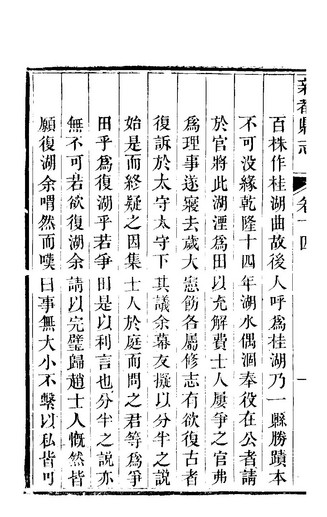 新都縣志
卷十四
一
百株作桂湖曲故後人呼爲桂湖乃一縣勝蹟本
不可没緣乾隆十四年湖水偶涸奉役在公者請
於官將此湖湮爲田以充解費士人屢爭之官弗
爲理事遂寢去歲大憲飭各屬修志有欲復古者
復訴於太守太守下其議余幕友擬以分半之說
始是而終疑之因集士人於庭而問之君等爲爭
田乎爲復湖乎若爭田是以利言也分半之說亦
無不可若欲復湖余請以完璧歸趙士人慨然皆
願復湖余喟然而嘆曰事無大小不繫以私皆可